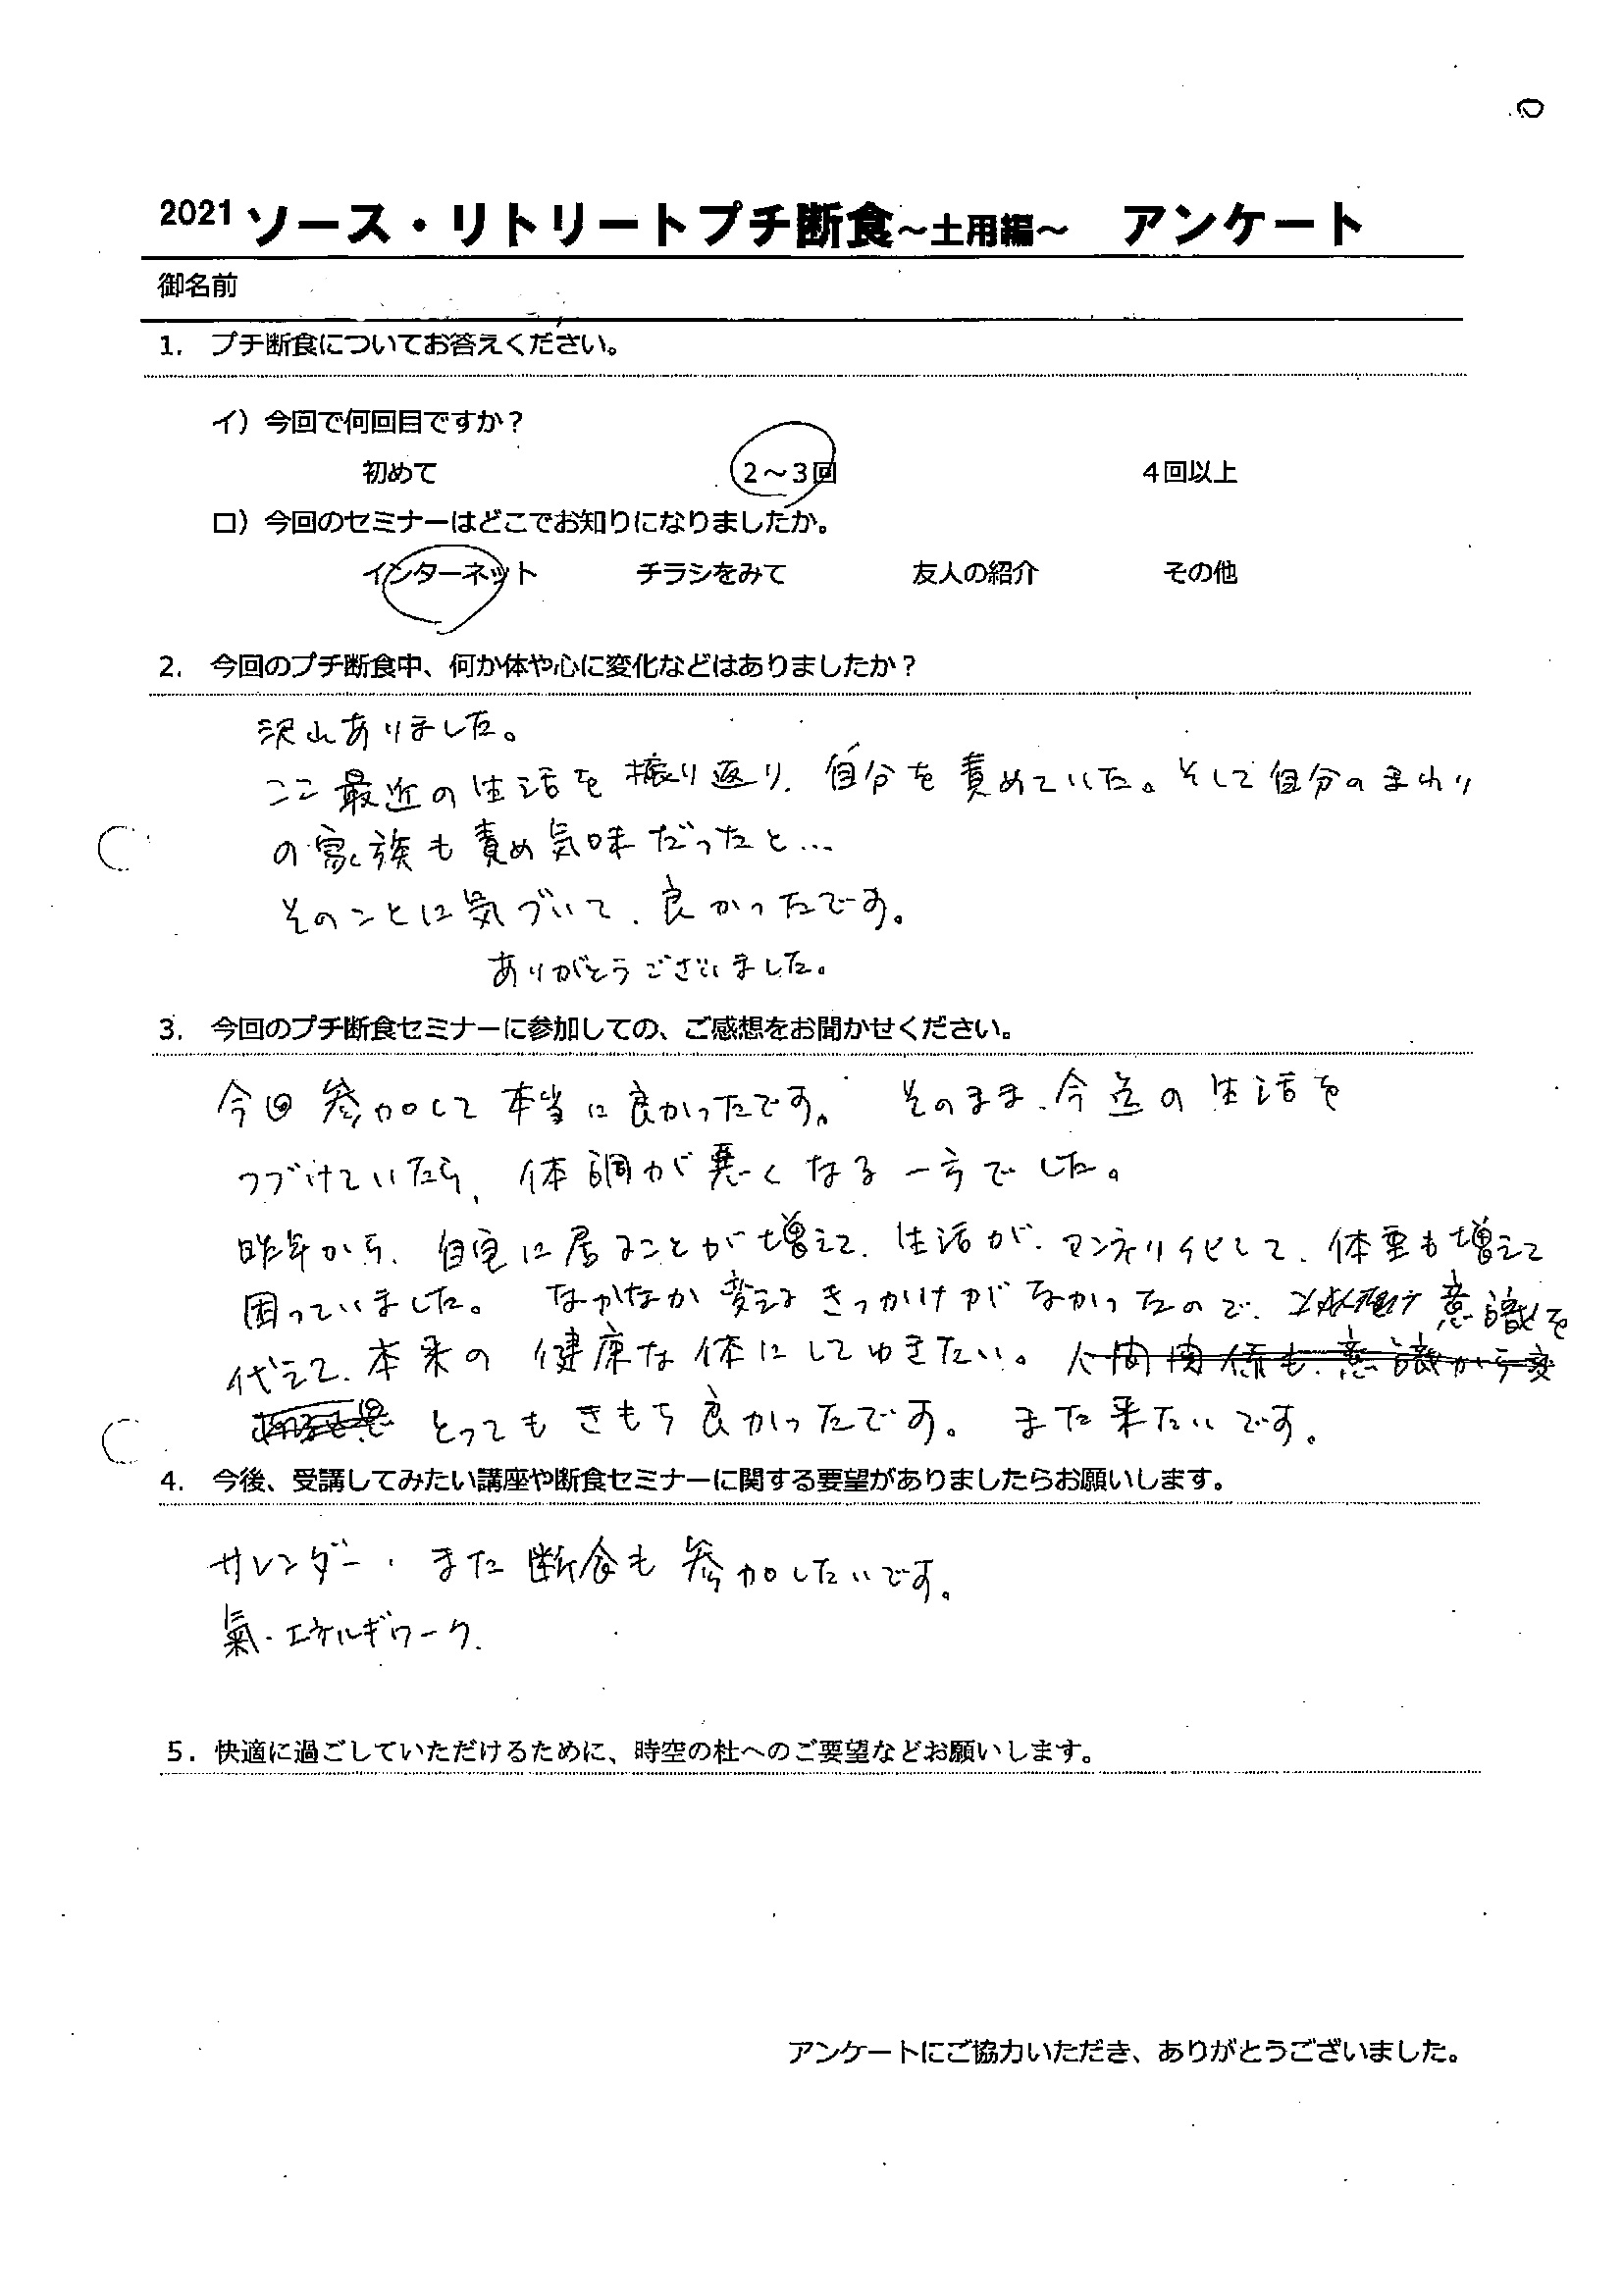 2021 ソース・リトリートプチ断食～土用編～　アンケート
御名前
1.　プチ断食についてお答えください。
イ）今回で何回目ですか？
初めて　2～3回　4回以上
ロ）今回のセミナーはどこでお知りになりましたか。
インターネット　チラシをみて　友人の紹介　その他
2.　今回のプチ断食中、何か体や心に変化などはありましたか？
沢山ありました。
ここ最近の生活を振り返り、自分を責めていた。そして自分のまわり
の家族も責め気味だったと…
そのことに気づいて、良かったです。
ありがとうございました。
3.　今回のプチ断食セミナーに参加しての、ご感想をお聞かせください。
今回参加して本当に良かったです。　そのまま、今迄の生活を
つづけていたら、体調が悪くなる一方でした。
昨年から、自宅に居ることが増えて、生活が、マンネリ化して、体重も増えて
困っていました。　なかなか変えるきっかけがなかったので、意識を
代えて、本来の健康な体にしてゆきたい。人間関係も、意識から変
とってもきもち良かったです。　また来たいです。
4.　今後、受講してみたい講座や断食セミナーに関する要望がありましたらお願いします。
サレンダー・また断食も参加したいです。
氣・エネルギワーク.
5．快適に過ごしていただけるために、時空の杜へのご要望などお願いします。
アンケートにご協力いただき、ありがとうございました。